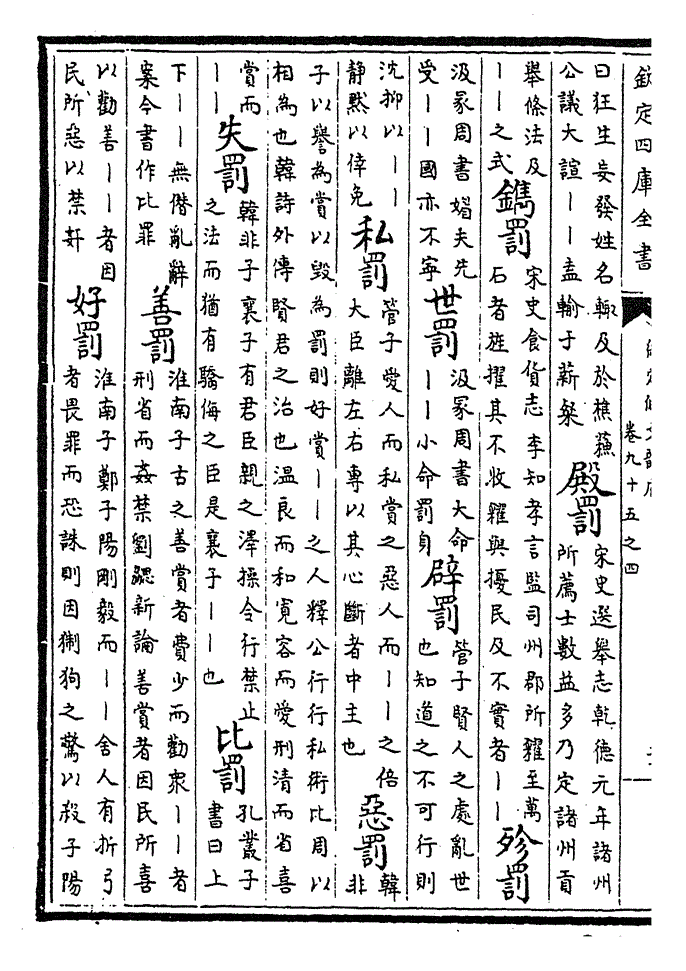 欽定四庫全書
卷九十五之四
曰狂生妄發姓名輙及於樵蘇
公議大諠丨丨盍輸于薪粲
殿罰
宋史選舉志乾德元年諸州
所薦士數益多乃定諸州貢
舉條法及
丨丨之式
鐫罰
宋史食貨志李知孝言監司州郡所糴至萬
石者旌擢其不收糴與擾民及不實者丨丨
殄罰
汲冢周書媢夫先
受丨丨國亦不寧
世罰
汲冢周書大命
丨丨小命罰身
辟罰
管子賢人之處亂世
也知道之不可行則
沈抑以丨丨
静黙以侔免
私罰
管子愛人而私賞之惡人而丨丨之倍
大臣離左右專以其心斷者中主也
惡罰
韓
非
子以譽為賞以毀為罰則好賞丨丨之人釋公行行私術比周以
相為也韓詩外傳賢君之治也温良而和寛容而愛刑清而省喜
賞而
丨丨
失罰
韓非子襄子有君臣親之澤操令行禁止
之法而猶有驕侮之臣是襄子丨丨也
比罰
孔叢子
書曰上
下丨丨無僭亂辭
案今書作比罪
善罰
淮南子古之善賞者費少而勸衆丨丨者
刑省而姦禁劉勰新論善賞者因民所喜
以勸善丨丨者因
民所惡以禁奸
好罰
淮南子鄭子陽剛毅而丨丨舍人有折弓
者畏罪而恐誅則因猘狗之驚以殺子陽